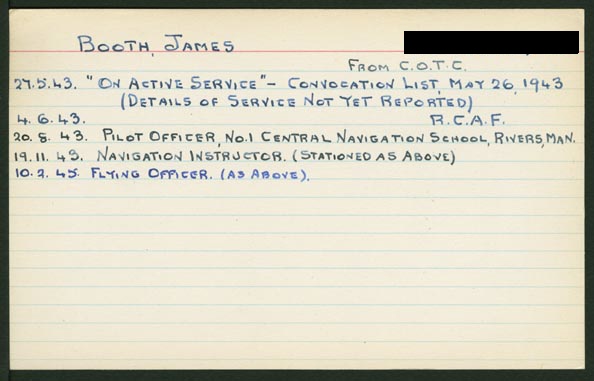 BOOTH, JAMES
FROM C.O.T.C.
27.5.43. "ON ACTIVE SERVICE" - CONVOCATION LIST, MAY 26, 1943
(DETAILS OF SERVICE NOT YET REPORTED)
4. 6. 43. R.C.A.F.
20. 8. 43. PILOT OFFICER, NO.1 CENTRAL NAVIGATION SCHOOL, RIVERS, MAN.
19.11. 43. NAVIGATION INSTRUCTOR. (STATIONED AS ABOVE)
10. 2. 45. FLYING OFFICER. (AS ABOVE).